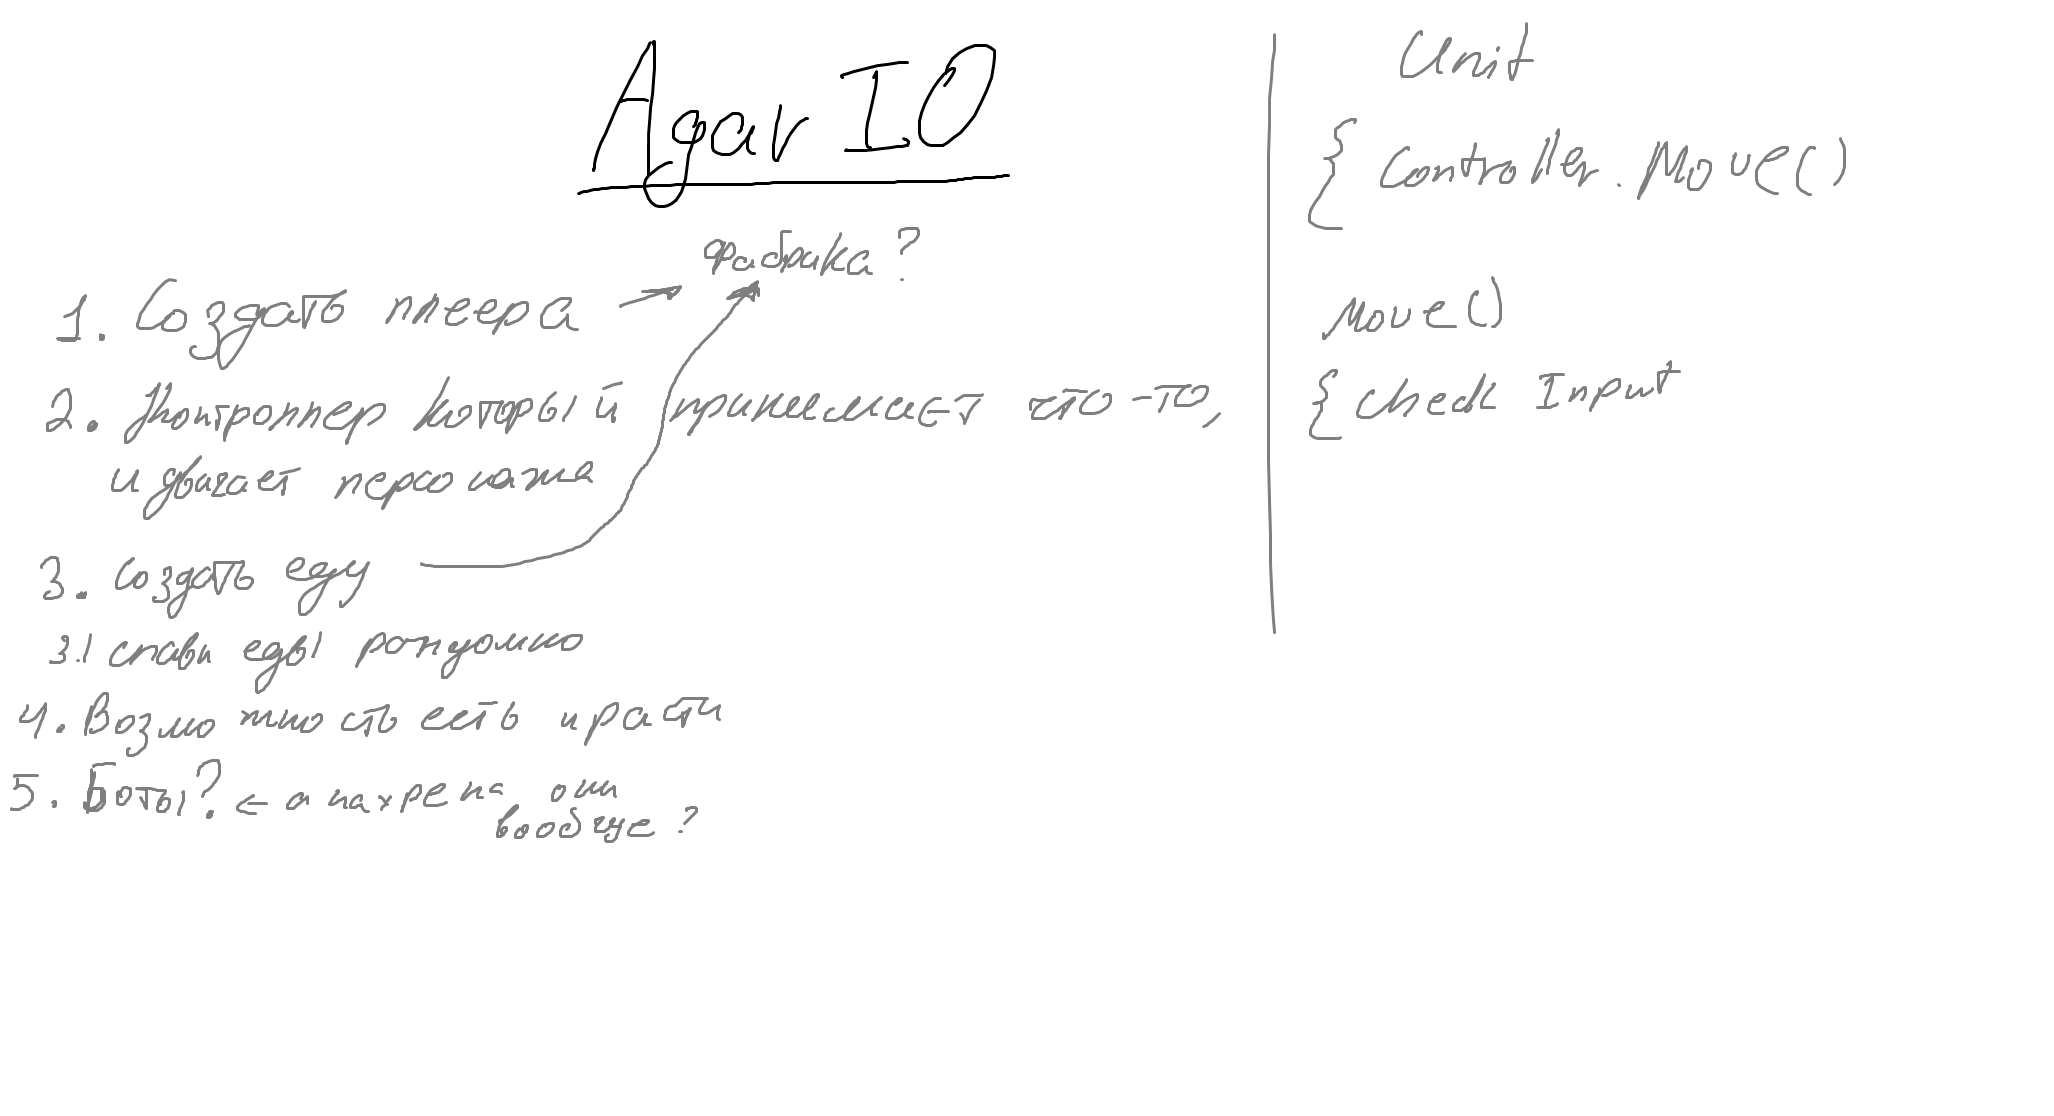 Agar IO
фабрика?
1. Создать плеера
2. Контроллер который принимает что-то,
и двигает персонажа
3. Создать еду
3.1 спавн еды рандомно
4. Возможность есть и расти
5. Боты? ← а нахрена они
вообще?
Unit
{ Controller.Move()
Move()
{ Check Input